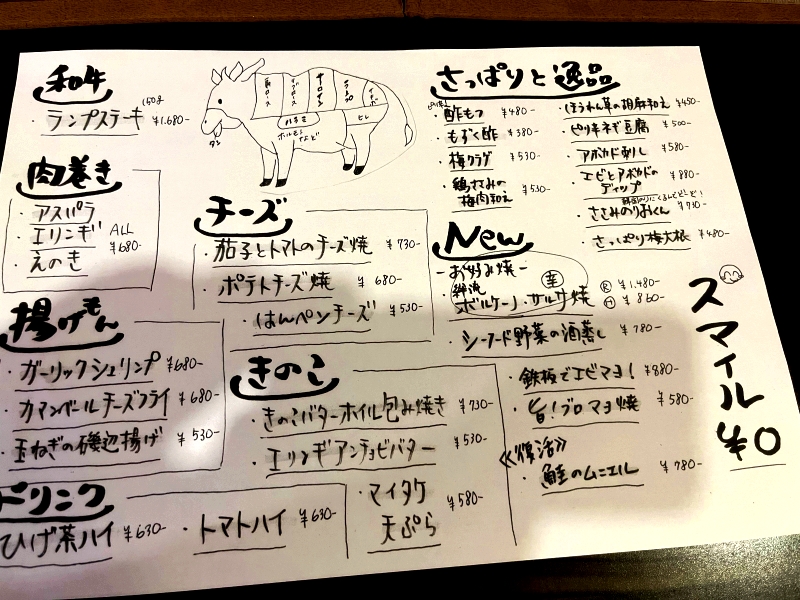 和牛
・ランプステーキ 150g ¥1.680-
タン
サーロイン
ランプ
ヒレ
ホルモン
など
肉巻き
・アスパラ
・エリンギ
・えのき
ALL
¥680-
揚げもん
・ガーリックシュリンプ ¥680-
・カマンベールチーズフライ ¥680-
・玉ねぎの磯辺揚げ ¥530-
ドリンク
ひげ茶ハイ ¥630-
・トマトハイ ¥630-
チーズ
・茄子とトマトのチーズ焼 ¥730-
・ポテトチーズ焼 ¥680-
・はんペンチーズ ¥530-
きのこ
・きのこバターホイル包み焼き ¥730-
・エリンギアンチョビバター ¥530-
・マイタケ
天ぷら ¥580-
さっぱりと逸品
・酢もつ ¥480-
・もずく酢 ¥380-
・梅クラゲ ¥530-
・鶏ささみの
梅肉和え ¥530-
・ほうれん草の胡麻和え ¥450-
・ピリ辛ネギ豆腐 ¥500-
・アボカド刺し ¥580-
・エビとアボカドの
ディップ ¥880-
・ささみのりおくん ¥730-
・さっぱり梅大根 ¥480-
New
-お好み焼-
・ボルケーノ・サルサ焼 辛
Ⓡ ¥1.480-
Ⓗ ¥860-
・シーフード野菜の酒蒸し ¥780-
・鉄板でエビマヨ! ¥880-
・旨!ブロマヨ焼 ¥580-
《復活》
・鮭のムニエル ¥780-
スマイル ¥0